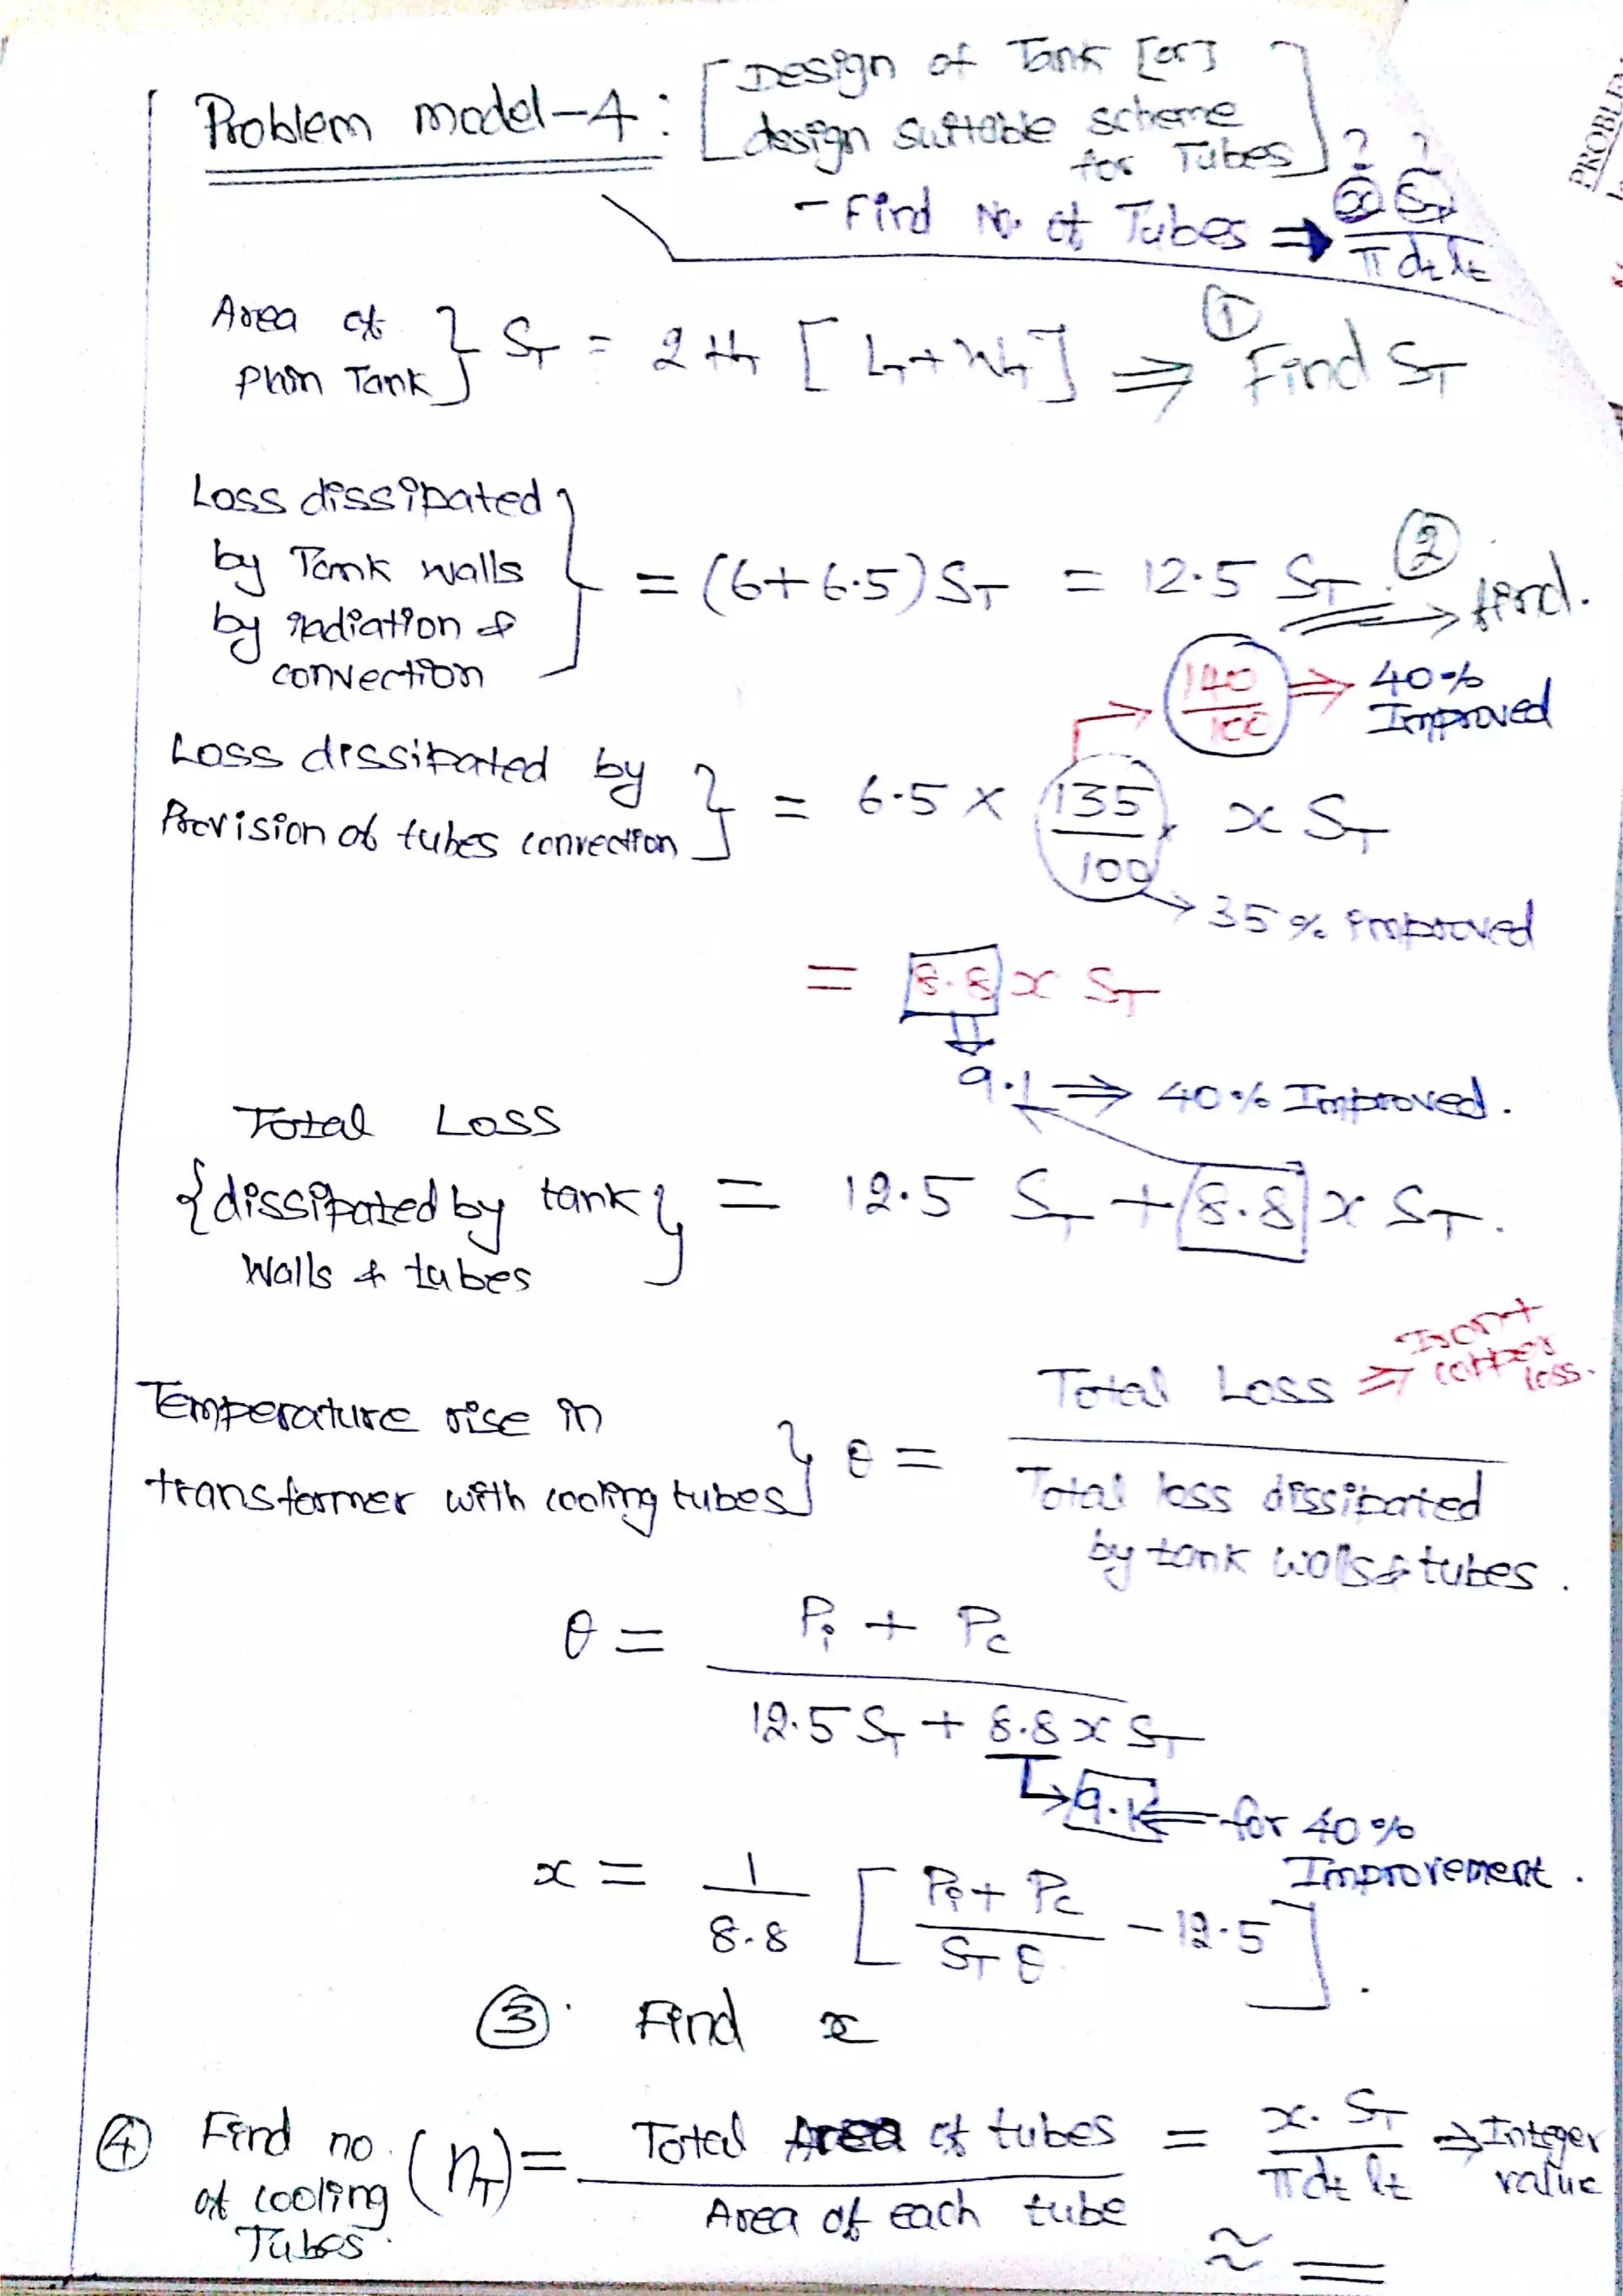 Problem model-4: [Design of Tank [or]
design suitable scheme
for Tubes]
- Find No. of Tubes ⇒ x S_T / π d_t l_t
? ?
Area of Plain Tank } S_T = 2 H_T [ L_T + W_T ] ⇒ ① Find S_T
Loss dissipated
by Tank walls
by radiation &
convection } = (6+6.5) S_T = 12.5 S_T. ② ⇒ find.
140/100 ⇒ 40% Improved
Loss dissipated by
Provision of tubes convection } = 6.5 × 135/100 × x S_T
→ 35% improved
= 8.8 x S_T
⇓
9.1 ⇒ 40% Improved.
Total Loss
{dissipated by tank
Walls & tubes } = 12.5 S_T + 8.8 x S_T.
Temperature rise in
transformer with cooling tubes } θ = Total Loss / Total loss dissipated by tank walls & tubes.
⇒ Iron + copper loss.
θ = P_i + P_c / 12.5 S_T + 8.8 x S_T
→ 9.1 ⇐ for 40% Improvement.
x = 1/8.8 [ P_i + P_c / S_T θ - 12.5 ].
③. Find x
④ Find no. of cooling Tubes. (n_T) = Total Area of tubes / Area of each tube = x. S_T / π d_t l_t ⇒ Integer value
≈ =